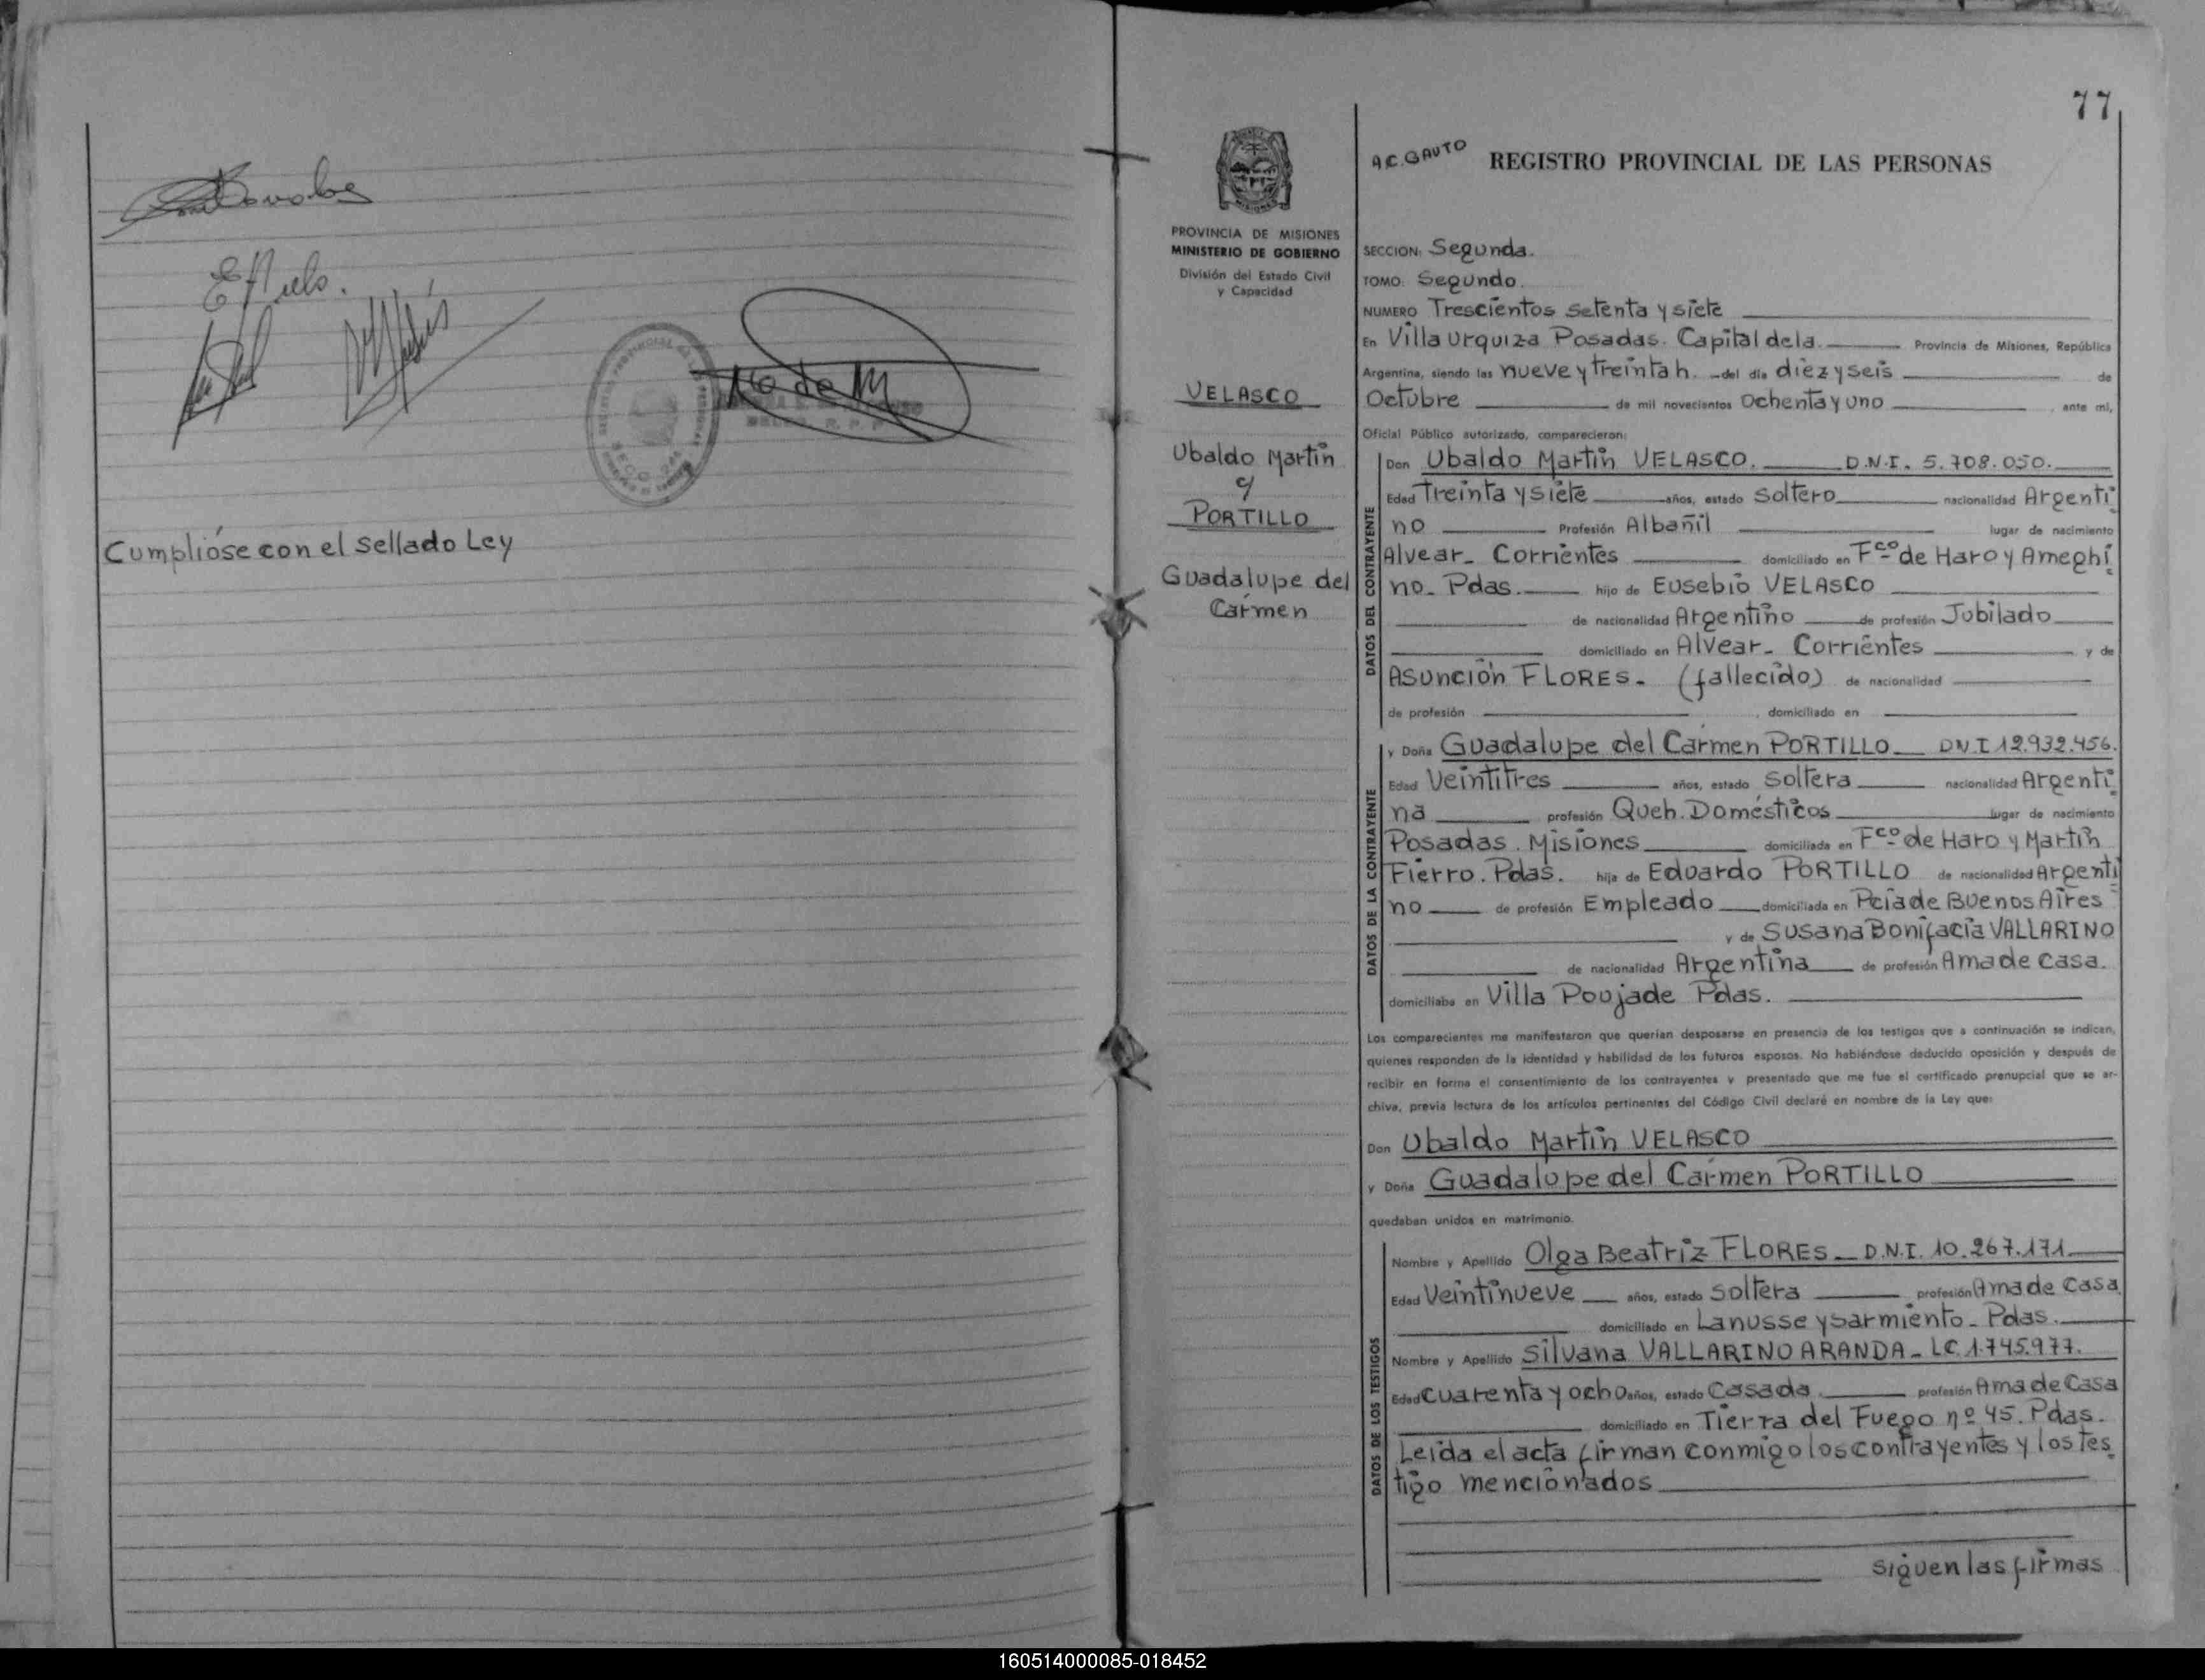 Cumplióse con el sellado Ley
77
A.C. GAUTO
REGISTRO PROVINCIAL DE LAS PERSONAS
PROVINCIA DE MISIONES
MINISTERIO DE GOBIERNO
División del Estado Civil
y Capacidad
VELASCO
Ubaldo Martín
y
PORTILLO
Guadalupe del
Carmen
SECCION: Segunda.
TOMO: Segundo.
NUMERO Trescientos setenta y siete
En Villa Urquiza Posadas. Capital de la. Provincia de Misiones, República
Argentina, siendo las nueve y treinta h. del día diez y seis de
Octubre de mil novecientos Ochenta y uno, ante mi,
Oficial Público autorizado, comparecieron:
DATOS DEL CONTRAYENTE
Don Ubaldo Martín VELASCO. D.N.I. 5.708.050.
Edad Treinta y siete años, estado soltero nacionalidad Argenti
no Profesión Albañil lugar de nacimiento
Alvear - Corrientes domiciliado en Fco de Haro y Ameghi
no. Pdas. hijo de Eusebio VELASCO
de nacionalidad Argentino de profesión Jubilado
domiciliado en Alvear - Corrientes y de
Asunción FLORES. (fallecido) de nacionalidad
de profesión , domiciliado en
DATOS DE LA CONTRAYENTE
y Doña Guadalupe del Carmen PORTILLO DNI 12.932.456.
Edad Veintitres años, estado soltera nacionalidad Argenti
na profesión Queh. Domésticos lugar de nacimiento
Posadas. Misiones domiciliada en Fco de Haro y Martín
Fierro. Pdas. hija de Eduardo PORTILLO de nacionalidad Argenti
no de profesión Empleado domiciliada en Pcia de Buenos Aires
y de Susana Bonifacia VALLARINO
de nacionalidad Argentina de profesión Ama de casa.
domiciliaba en Villa Poujade Pdas.
Los comparecientes me manifestaron que querían desposarse en presencia de los testigos que a continuación se indican,
quienes responden de la identidad y habilidad de los futuros esposos. No habiéndose deducido oposición y después de
recibir en forma el consentimiento de los contrayentes y presentado que me fue el certificado prenupcial que se ar-
chiva, previa lectura de los artículos pertinentes del Código Civil declaré en nombre de la Ley que:
Don Ubaldo Martín VELASCO
y Doña Guadalupe del Carmen PORTILLO
quedaban unidos en matrimonio.
DATOS DE LOS TESTIGOS
Nombre y Apellido Olga Beatriz FLORES - D.N.I. 10.267.171
Edad Veintinueve años, estado soltera profesión Ama de casa
domiciliado en Lanusse y Sarmiento - Pdas.
Nombre y Apellido Silvana VALLARINO ARANDA - LC. 1.745.977.
Edad Cuarenta y ocho años, estado Casada profesión Ama de Casa
domiciliado en Tierra del Fuego nº 45. Pdas.
Leida el acta firman conmigo los contrayentes y los tes
tigo mencionados
siguen las firmas
160514000085-018452